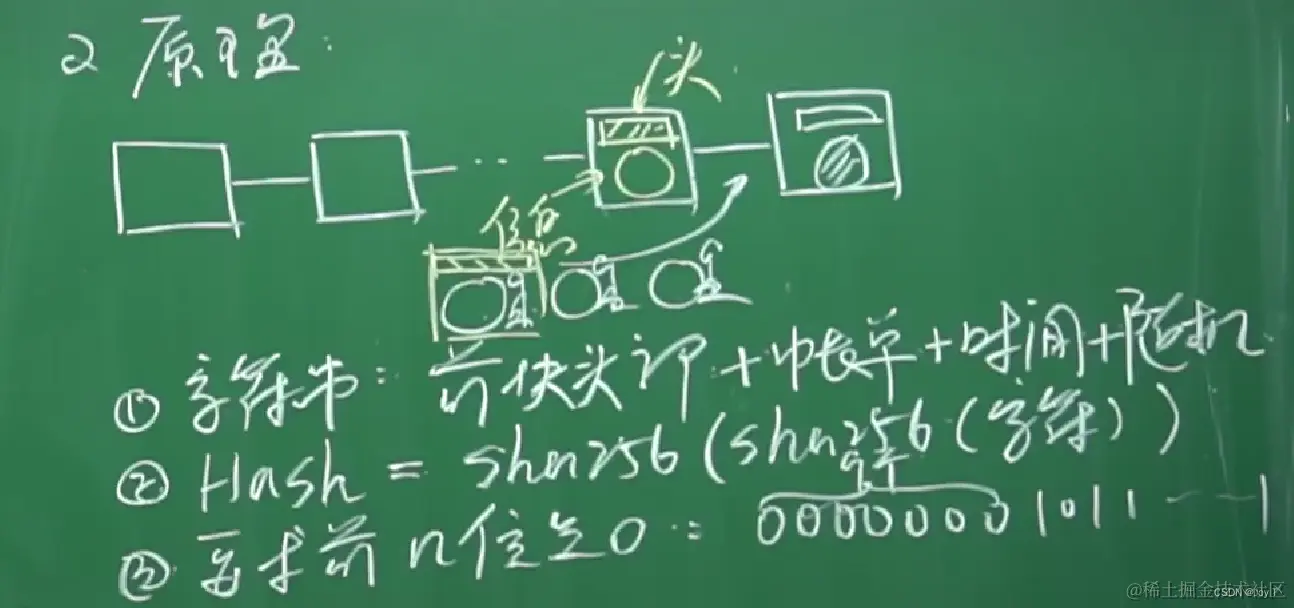 2 原理:
头
信息
① 字符串: 前块头部+帐单+时间+随机
② Hash = sha256(sha256(字符串))
n个
③ 要求前n位全0: 00000001011---1
@稀土掘金技术社区